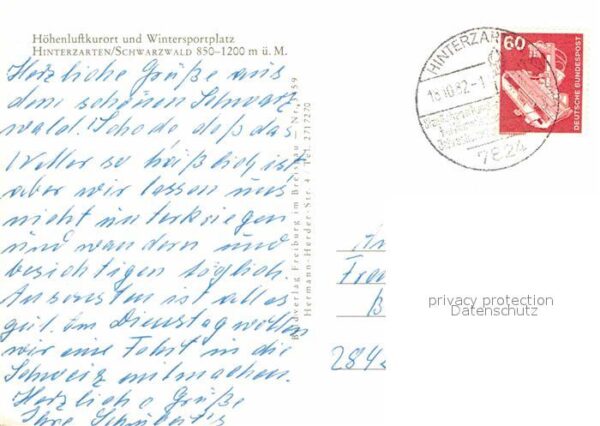 Höhenluftkurort und Wintersportplatz
HINTERZARTEN/SCHWARZWALD 850–1200 m ü. M.
Herzliche Grüße aus
dem schönen Schwarz-
wald. Schade daß das
Wetter so häßlich ist
aber wir lassen uns
nicht unterkriegen
und wandern und
besichtigen täglich.
Ansonsten ist alles
gut. Am Dienstag wollen
wir eine Fahrt in die
Schweiz mitmachen.
Herzliche Grüße
Ihre Schubert's
Bildverlag Freiburg im Breisgau – Nr.
Hermann-Herder-Str. 4 · Tel. 2717220
HINTERZAR
18.10.82-1
7824
60
DEUTSCHE BUNDESPOST
An
B
284
privacy protection
Datenschutz